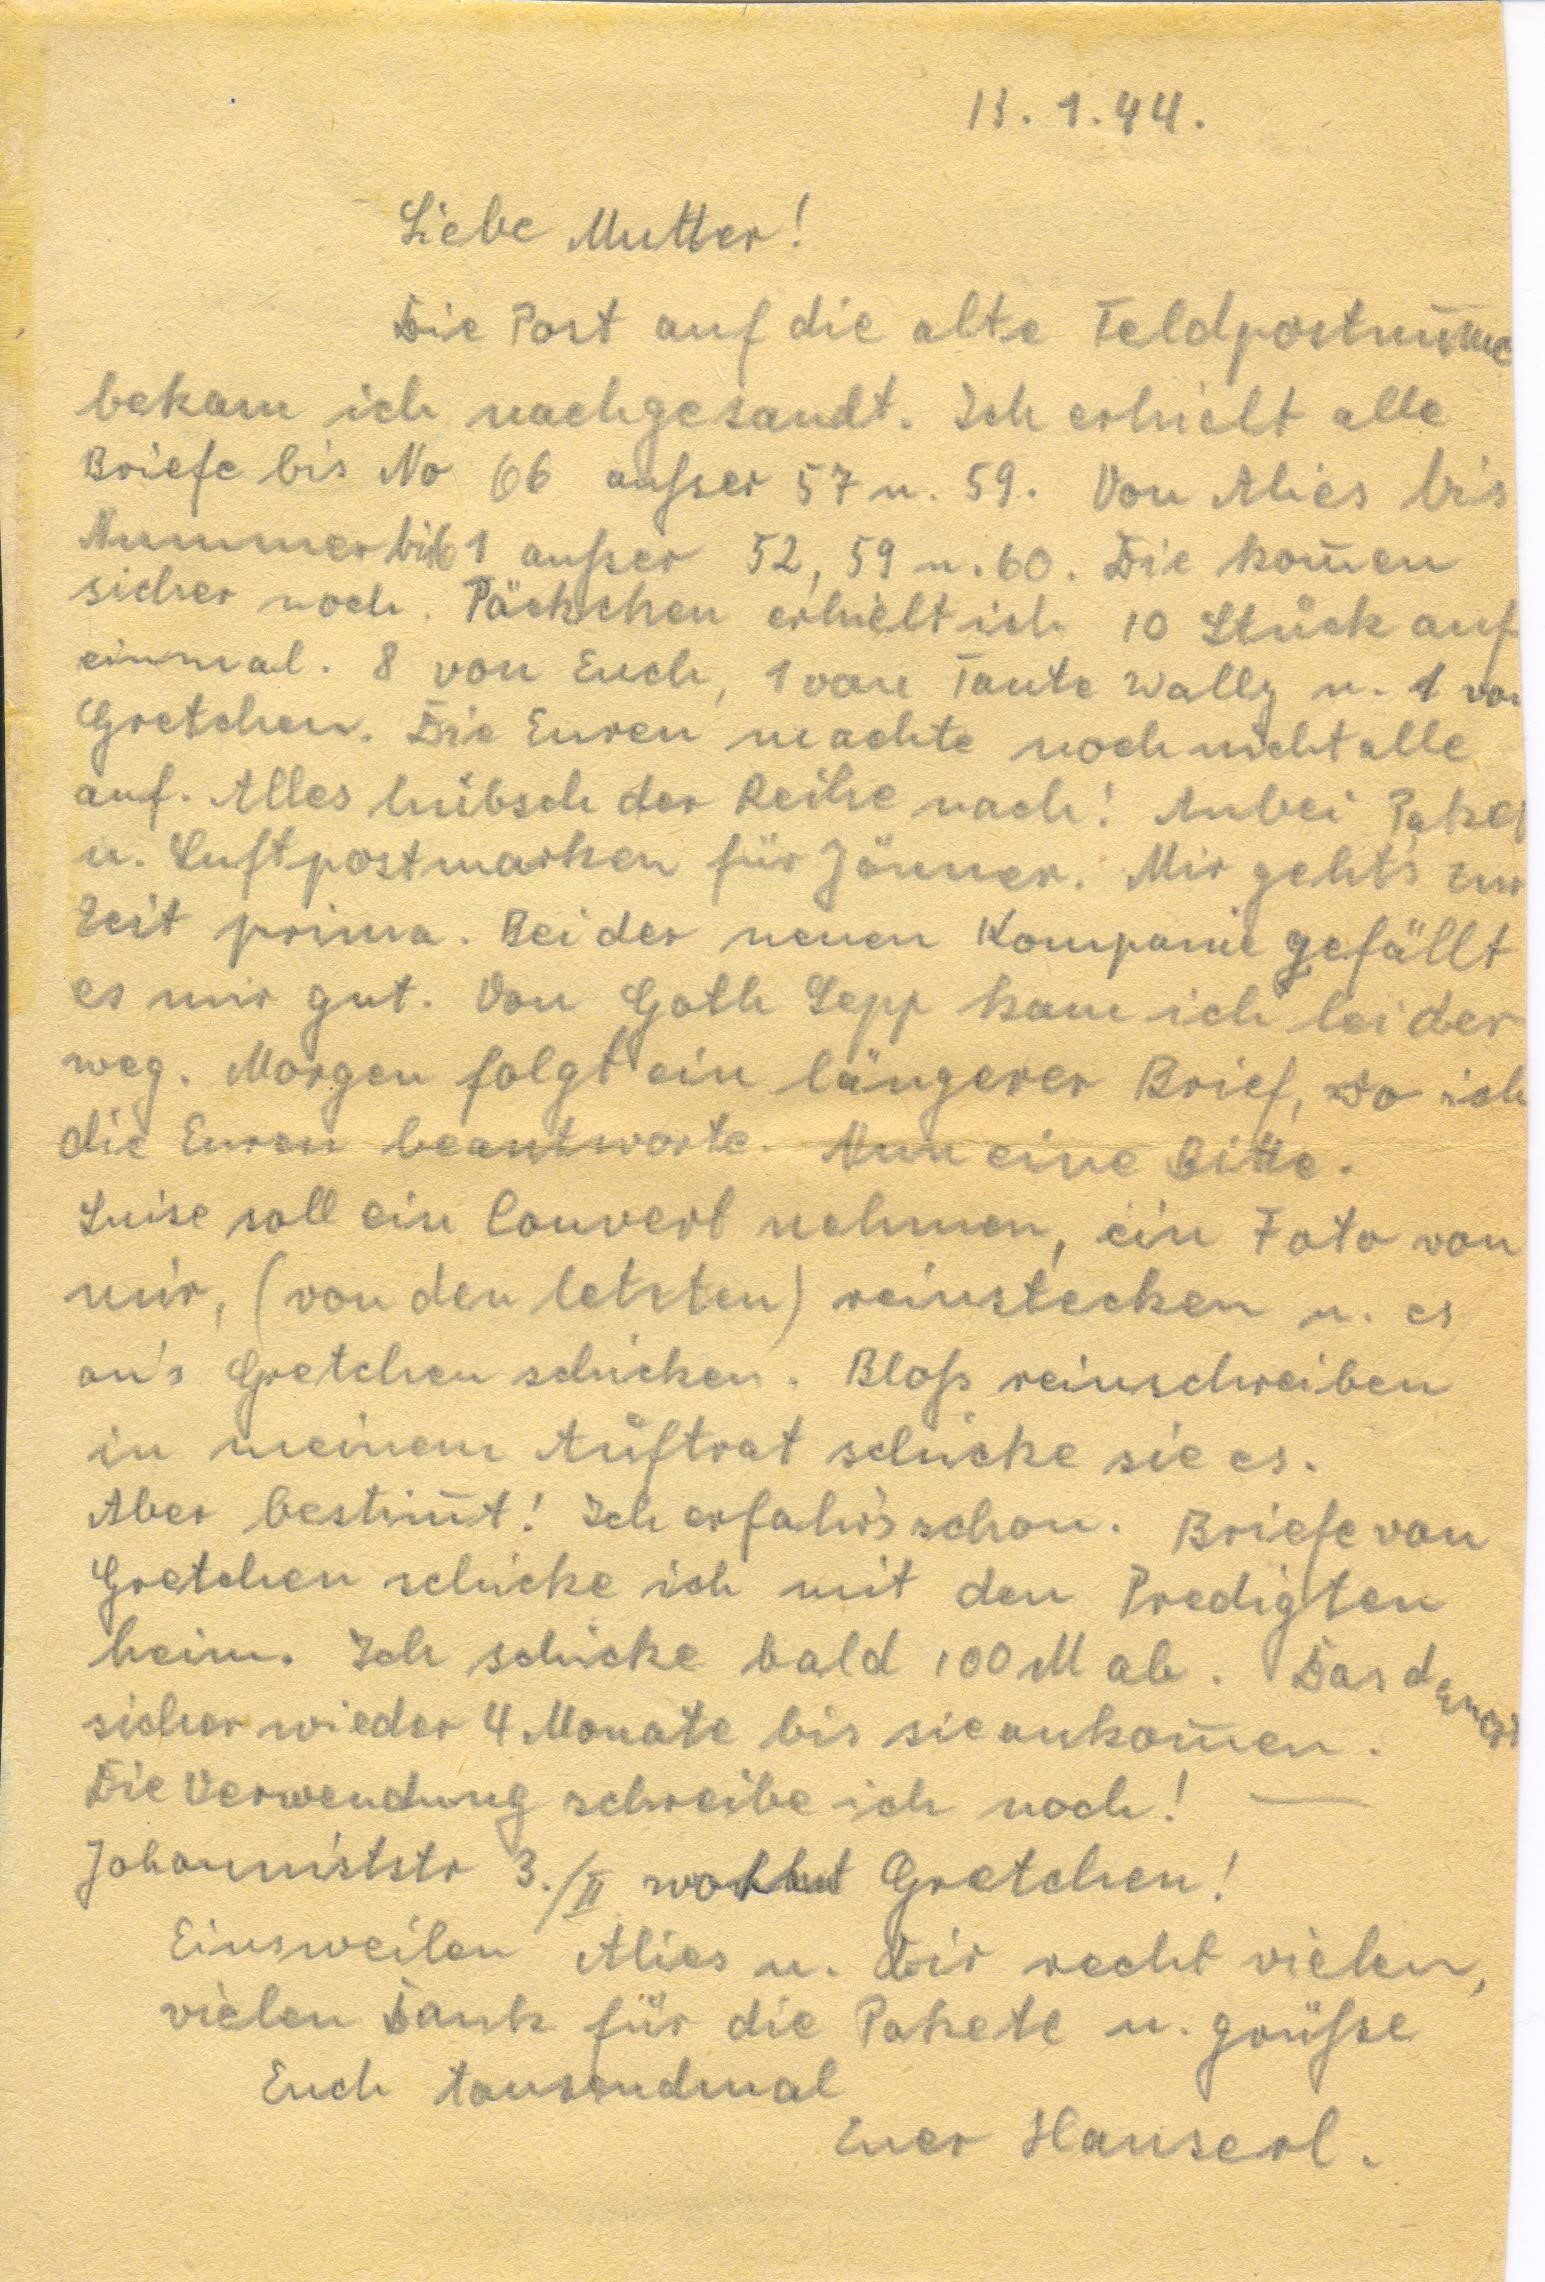 13. 1. 44.
Liebe Mutter!
Die Post auf die alte Feldpostnum̅e
bekam ich nachgesandt. Ich erhielt alle
Briefe bis No 66 ausser 57 u. 59. Von Alies bis
Nummer bis 61 ausser 52, 59 u. 60. Die kom̅en
sicher noch. Päckchen erhielt ich 10 Stück auf
einmal. 8 von Euch, 1 von Tante Wally u. 1 von
Gretchen. Die Euren machte noch nicht alle
auf. Alles hübsch der Reihe nach! Anbei Paket
u. Luftpostmarken für Jänner. Mir geht's zur
Zeit prima. Bei der neuen Kompanie gefällt
es mir gut. Von Goth Sepp kam ich leider
weg. Morgen folgt ein längerer Brief, wo ich
die Euren beantworte. Nun eine Bitte.
Luise soll ein Couvert nehmen, ein Foto von
mir, (von den letzten) reinstecken u. es
an's Gretchen schicken. Bloß reinschreiben
in meinem Auftrat schicke sie es.
Aber bestim̅t! Ich erfahr's schon. Briefe von
Gretchen schicke ich mit den Predigten
heim. Ich schicke bald 100 M ab. Das dauert
sicher wieder 4 Monate bis sie ankom̅en.
Die Verwendung schreibe ich noch! —
Johanniststr 3./II wohnt Gretchen!
Einsweilen Alies u. Dir recht vielen,
vielen Dank für die Pakete u. grüsse
Euch tausendmal
Euer Hanserl.